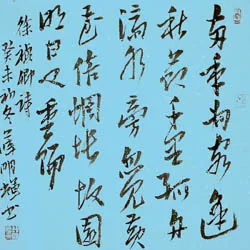 两年為客逢
秋节千里孤舟
济水旁忽见黄
花倍惆怅故園
明日又重陽
徐祯卿诗
癸未初冬明輝书